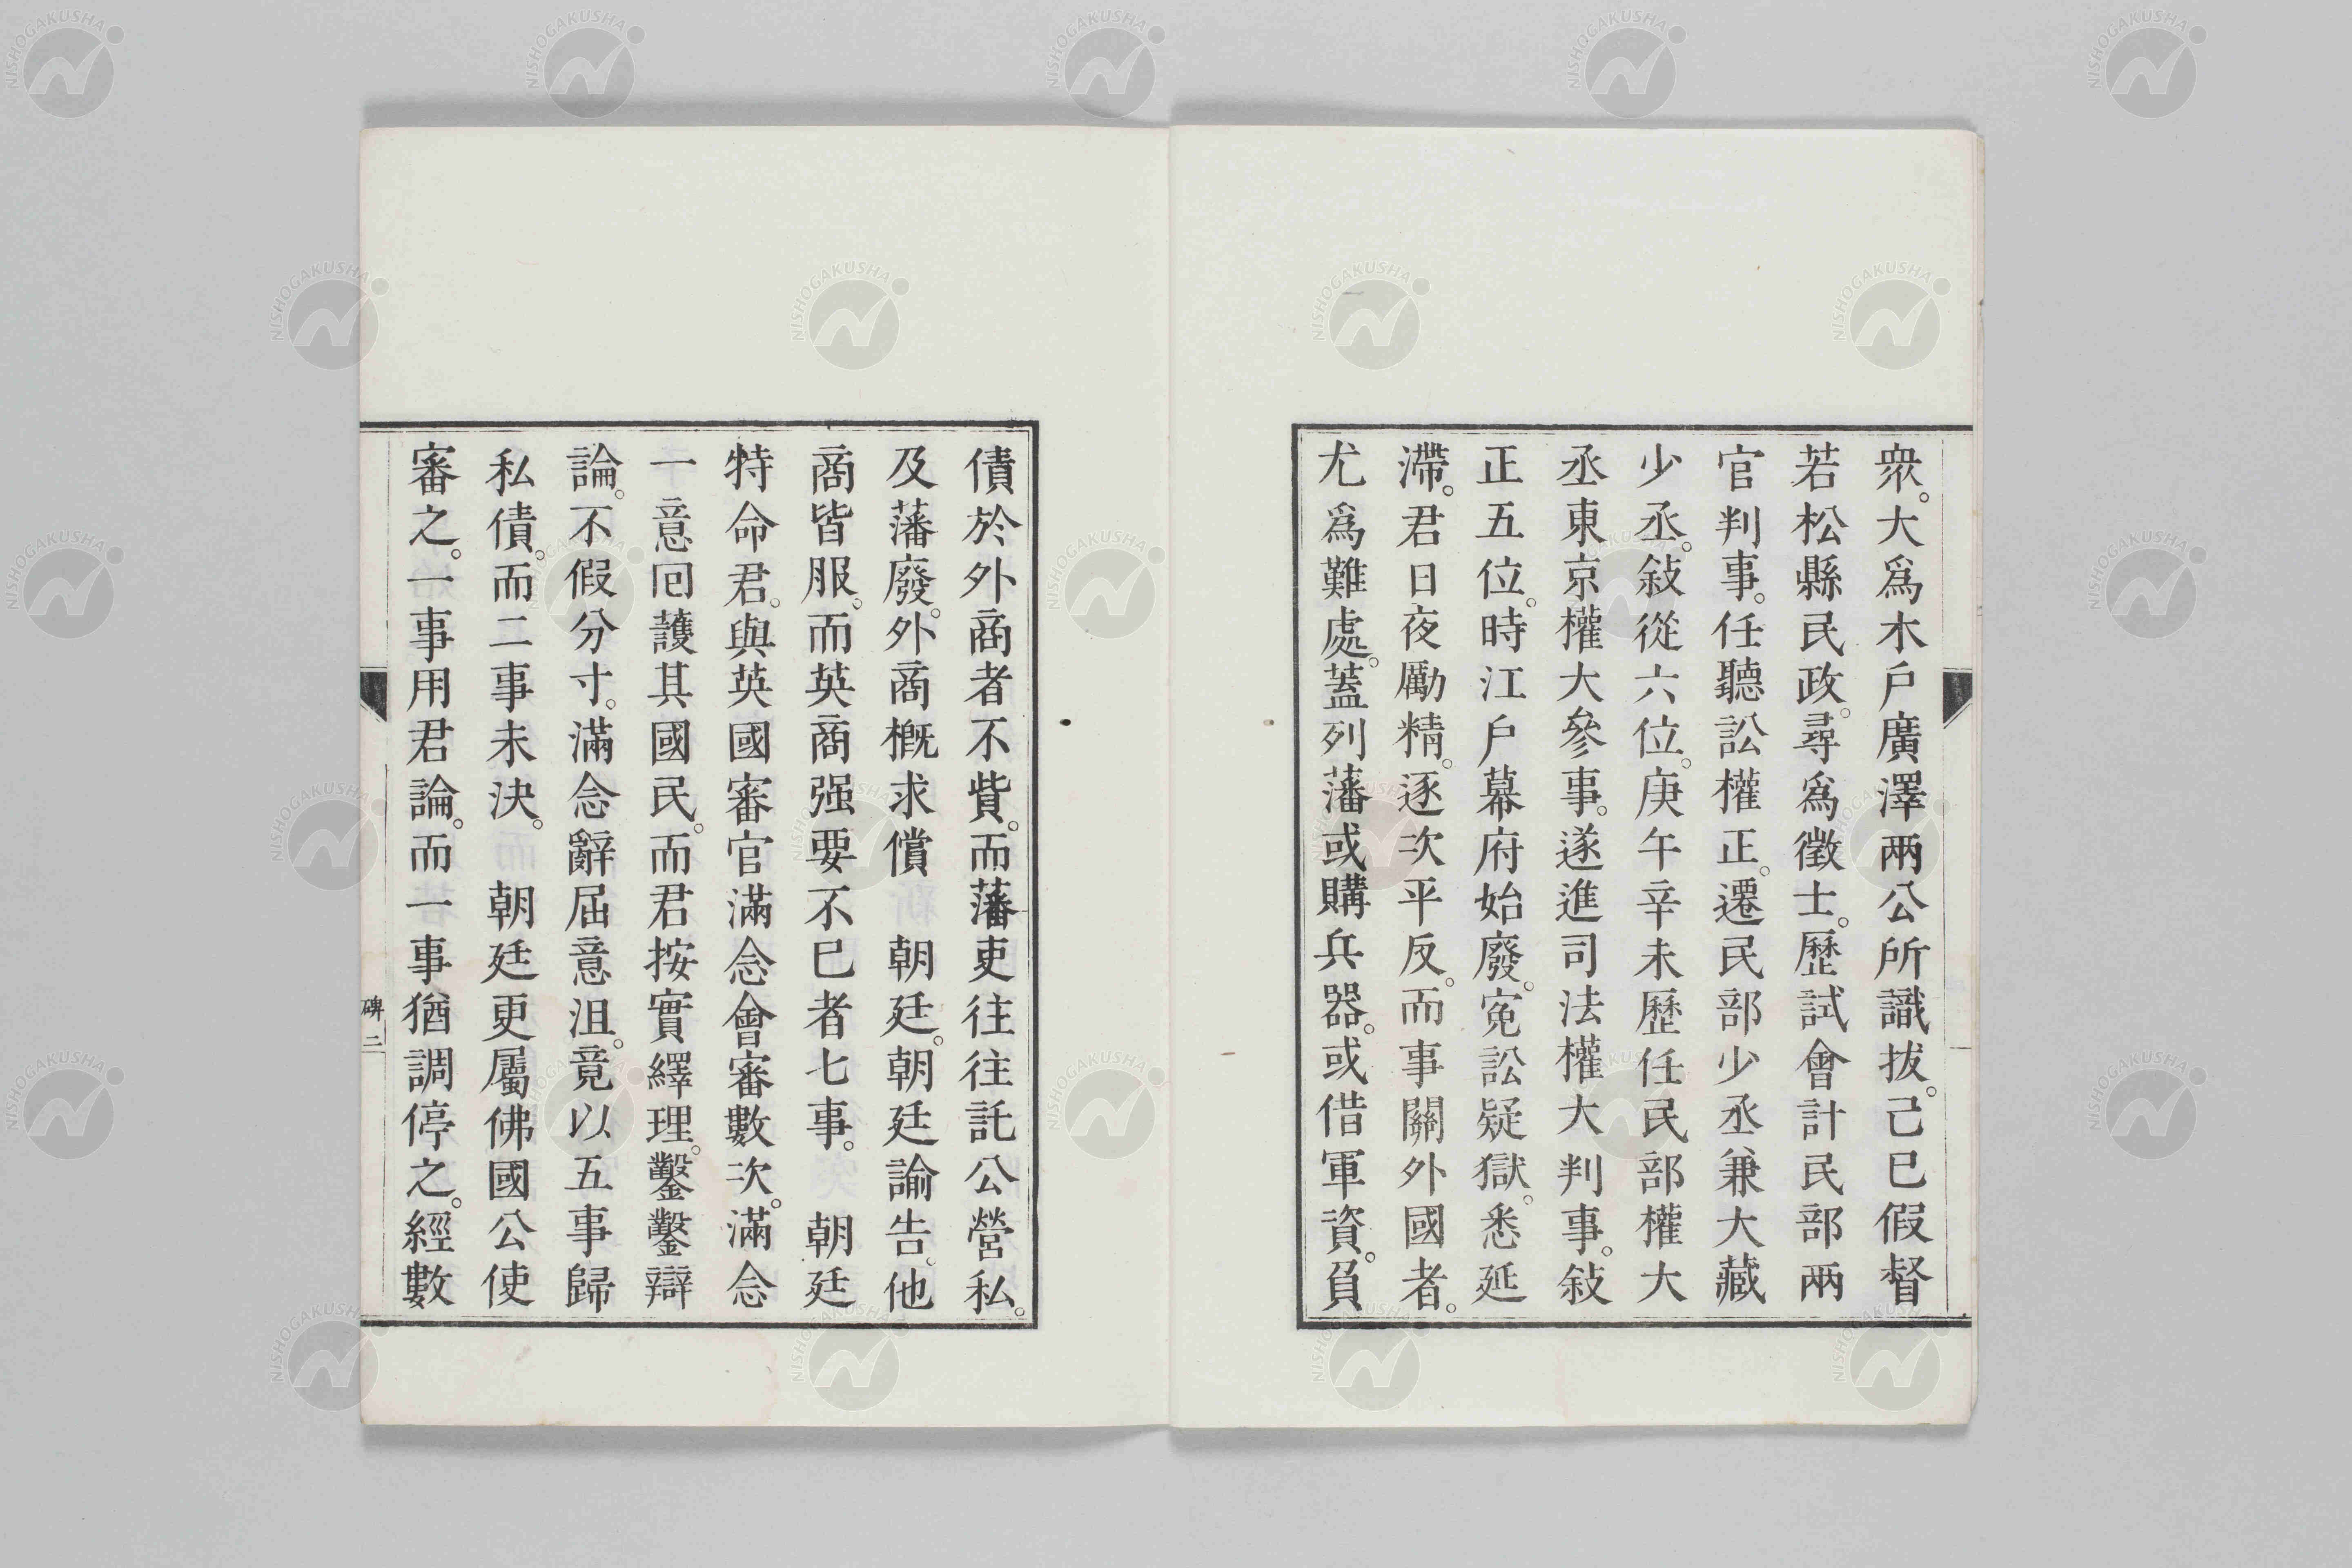 衆。大爲木戶廣澤兩公所識拔。己巳假督
若松縣民政。尋爲徵士。歷試會計民部兩
官判事。任聽訟權正。遷民部少丞兼大藏
少丞。敍從六位。庚午辛未歷任民部權大
丞東京權大參事。遂進司法權大判事。敍
正五位。時江戶幕府始廢。寃訟疑獄。悉延
滯。君日夜勵精。逐次平反。而事關外國者。
尤爲難處。蓋列藩或購兵器。或借軍資。負
債於外商者不貲。而藩吏往往託公營私。
及藩廢。外商概求償　朝廷。朝廷諭告。他
商皆服。而英商强要不已者七事。　朝廷
特命君。與英國審官滿念會審數次。滿念
一意回護其國民。而君按實繹理。鑿鑿辯
論。不假分寸。滿念辭屈意沮。竟以五事歸
私債。而二事未決。　朝廷更屬佛國公使
審之。一事用君論。而一事猶調停之。經數
碑 二
NISHOGAKUSHA